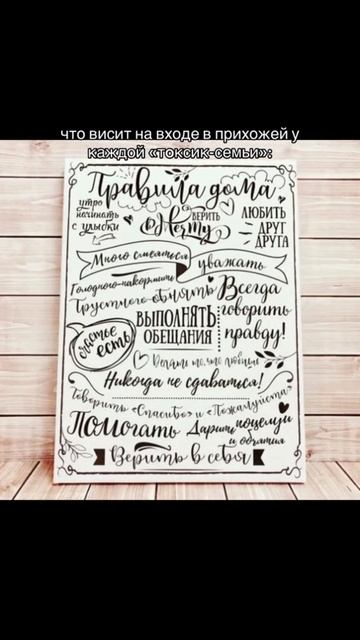 что висит на входе в прихожей у
каждой «токсик-семьи»:
Правила дома
утро
начинать
с улыбки
ВЕРИТЬ
в Мечту
ЛЮБИТЬ
ДРУГ
ДРУГА
Много смеяться
уважать
Голодного-накормить
Грустного-обнять
Всегда
говорить
правду!
счастье
есть
ВЫПОЛНЯТЬ
ОБЕЩАНИЯ
Делать то, что любишь
Никогда не сдаваться!
Говорить «Спасибо» и «Пожалуйста»
Помогать
Дарить поцелуи
и объятия
Верить в себя